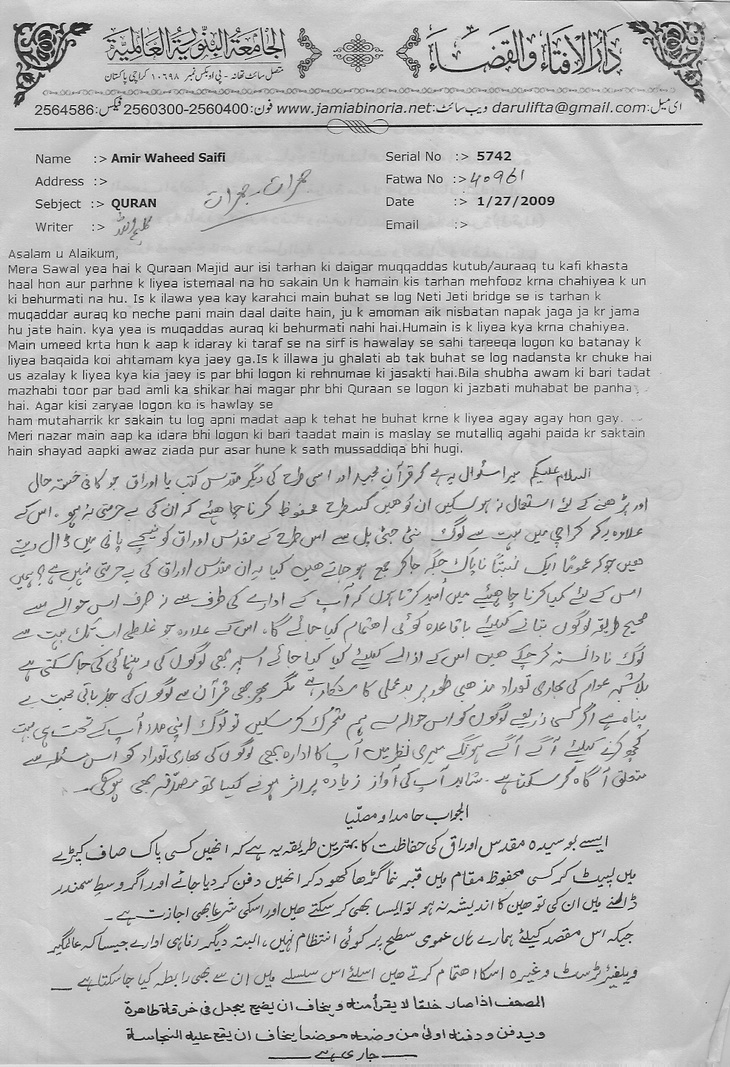 دار الافتاء والقضاء
الجامعة البنورية العالمية
متصل سائٹ تھانہ - پی او بکس نمبر ۱۰۶۹۸ کراچی پاکستان
ای میل: darulifta@gmail.com ویب سائٹ: www.jamiabinoria.net فون: 2560300-2560400 فیکس: 2564586
Name :> Amir Waheed Saifi Serial No :> 5742
Address :> Fatwa No :> 40961
Sebject :> QURAN Date :> 1/27/2009
Writer :> Email :>
Asalam u Alaikum,
Mera Sawal yea hai k Quraan Majid aur isi tarhan ki daigar muqqaddas kutub/auraaq tu kafi khasta
haal hon aur parhne k liyea istemaal na ho sakain Un k hamain kis tarhan mehfooz krna chahiyea k un
ki behurmati na hu. Is k ilawa yea kay karahci main buhat se log Neti Jeti bridge se is tarhan k
muqaddar auraq ko neche pani main daal daite hain, ju k amoman aik nisbatan napak jaga ja kr jama
hu jate hain. kya yea is muqaddas auraq ki behurmati nahi hai.Humain is k liyea kya krna chahiyea.
Main umeed krta hon k aap k idaray ki taraf se na sirf is hawalay se sahi tareeqa logon ko batanay k
liyea baqaida koi ahtamam kya jaey ga.Is k illawa ju ghalati ab tak buhat se log nadansta kr chuke hai
us azalay k liyea kia jaey is par bhi logon ki rehnumae ki jasakti hai.Bila shubha awam ki bari tadat
mazhabi toor par bad amli ka shikar hai magar phr bhi Quraan se logon ki jazbati muhabat be panha
hai. Agar kisi zaryae logon ko is hawlay se
ham mutaharrik kr sakain tu log apni madat aap k tehat he buhat krne k liyea agay agay hon gay.
Meri nazar main aap ka idara bhi logon ki bari taadat main is maslay se mutalliq agahi paida kr saktain
hain shayad aapki awaz ziada pur asar hune k sath mussaddiqa bhi hugi.
السلام علیکم میرا سوال یہ ہے کہ قرآن مجید اور اسی طرح کی دیگر مقدس کتب یا اوراق جو کافی خستہ حال
اور پڑھنے کے لئے استعمال نہ ہو سکیں ان کو ہمیں کسطرح محفوظ کرنا چاہئے کہ ان کی بے حرمتی نہ ہو۔ اس کے
علاوہ یہ کہ کراچی میں بہت سے لوگ نیٹی جیٹی پل سے اس طرح کے مقدس اوراق کو نیچے پانی میں ڈال دیتے
ھیں جو کہ عموماً ایک نسبتاً ناپاک جگہ جا کر جمع ہو جاتے ھیں کیا یہ ان مقدس اوراق کی بے حرمتی نہیں ہے؟ ہمیں
اس کے لئے کیا کرنا چاہیئے میں اُمید کرتا ہوں کہ آپ کے ادارے کی طرف سے نہ صرف اس حوالے سے
صحیح طریقہ لوگوں بتانے کیلئے باقاعدہ کوئی اھتمام کیا جائے گا۔ اس کے علاوہ جو غلطی اب تک بہت سے
لوگ نادانستہ کر چکے ھیں اس کے ازالے کیلئے کیا کیا جائے اسپر بھی لوگوں کی رہنمائی کی جا سکتی ہے
بلاشبہ عوام کی بھاری تعداد مذھبی طور پر بد عملی کا شکار ہے مگر پھر بھی قرآن سے لوگوں کی جذباتی محبت بے
پناہ ہے اگر کسی ذریعے لوگوں کو اس حوالہ سے ہم متحرک کر سکیں تو لوگ اپنی مدد آپ کے تحت ہی بہت
کچھ کرنے کیلئے آگے آگے ہونگے میری نظر میں آپ کا ادارہ بھی لوگوں کی بھاری تعداد کو اس مسئلہ سے
متعلق آگاہ کر سکتا ہے۔ شاید آپ کی آواز زیادہ پر اثر ہونے کیساتھ مصدّقہ بھی ہوگی۔
الجواب حامدا ومصلّیا
ایسے بوسیدہ مقدس اوراق کی حفاظت کا بہترین طریقہ یہ ہے کہ انھیں کسی پاک صاف کپڑے
میں لپیٹ کر کسی محفوظ مقام میں قبر نما گڑھا کھود کر انھیں دفن کر دیا جائے اور اگر وسطِ سمندر
ڈالنے میں ان کی توھین کا اندیشہ نہ ہو تو ایسا بھی کر سکتے ھیں اور اسکی شرعاً بھی اجازت ہے۔
جبکہ اس مقصد کیلئے ہمارے ہاں عمومی سطح پر کوئی انتظام نہیں، البتہ دیگر رفاہی ادارے جیسا کہ عالمگیر
ویلفیئر ٹرسٹ وغیرہ اسکا اھتمام کرتے ھیں اسلئے اس سلسلے میں ان سے بھی رابطہ کیا جا سکتا ہے
المصحف اذا صار خلقا لا يقرأ منه ويخاف ان يضيع يجعل فى خرقة طاهرة
ويدفن ودفنه اولى من وضعه موضعا يخاف ان يقع عليه النجاسة
جاری ہے